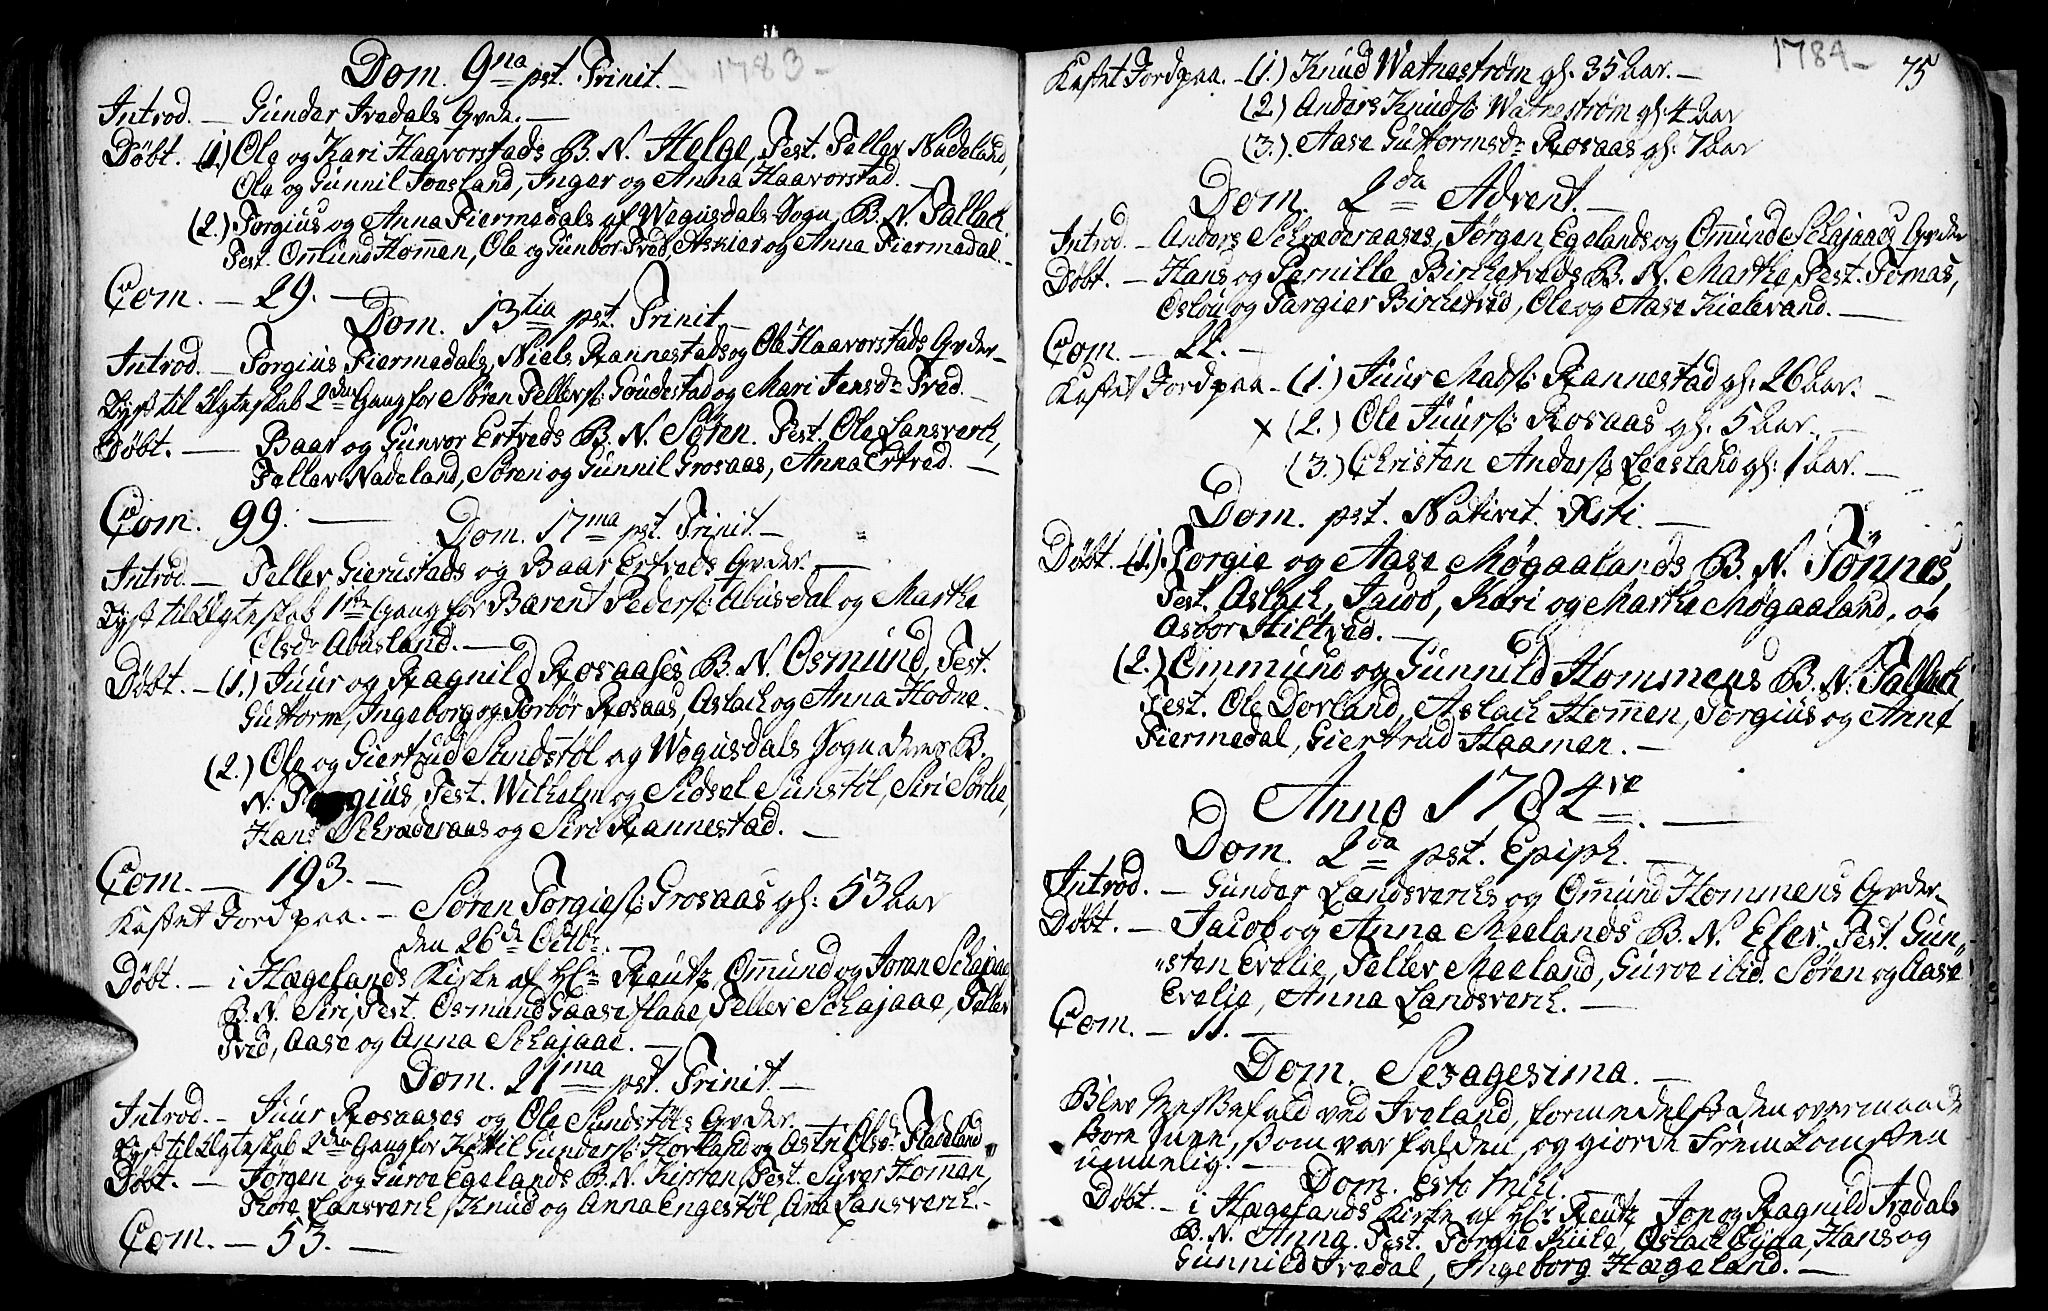 1783 -
Dom. 9na pst. Trinit. -
Introd. - Gunder Ivedals Qvde. -
Døbt. (1.) Ole og Kari Haavorstads B. N. Helge, Test. Tellev Nadeland,
Ole og Gunnil Joesland, Inger og Anna Haavorstad. -
(2.) Torgius og Anna Fiermedals af Wegusdals Sogn, B. N. Tallach
Test. Omund Homen, Ole og Gunbor Tved, Askier og Anna Fiermedal. -
Com. - 29. -
Dom. 13tia pst. Trinit. -
Introd. - Torgius Fiermedals, Niels Rannestads og Ole Haavorstads Qvder -
Lyst til Ægteskab 2den Gang for Søren Tellefs: Goudestad og Mari Jensdr Tved. -
Døbt. - Baar og Gunvor Ertveds B. N. Søren. Test. Ole Lansverk,
Tellev Nadeland, Søren og Gunnil Grosaas, Anna Ertved. -
Com. 99. -
Dom. 17ma pst. Trinit. -
Introd. - Tellev Gierustads og Baar Ertveds Qvder. -
Lyst til Ægteskab 1ste Gang for Barent Peders: Abusdal og Marthe
Olsdr Abusland. -
Døbt. - (1.) Juur og Ragnild Rosaases B. N. Osmund, Test.
Guttorm, Ingeborg og Torbør Rosaas, Aslach og Anna Hodne. -
(2.) Ole og Giertrud Sundstøl ag Wegusdals Sogn deres B.
N: Torgius, Test. Wilhelm og Sidsel Sunstøl, Siri Sørlie,
Hans Schræderaas og Siri Rannestad. -
Com. - 193. -
Kastet Jord paa. - Søren Torgies: Grosaas gl: 53 Aar
den 26de Octbr. -
Døbt. - i Hægelands Kirke af Hr Reutz, Omund og Joran Schajaae
B. N. Siri, Test. Osmund Gaaseflaae, Tellev Schajaae, Tellev
Tved, Aase og Anna Schajaae. -
Dom. 21ma pst. Trinit. -
Introd. - Juur Rosaases og Ole Sundstøls Qvder. -
Lyst til Ægteskab 2den Gang for Kittil Gunders: Hortland og Astri Olsdr Fladeland
Døbt. - Jørgen og Guroe Egelands B. N. Kirsten, Test. Syver Homan,
Thore Lansverk, Knud og Anna Engestøl, Ana Lansverk. -
Com. - 53. -
1784 - 75
Kastet Jord paa. - (1.) Knud Watnestrøm gl: 35 Aar. -
(2.) Anders Knuds: Watnestrøm gl: 4 Aar
(3.) Aase Guttormsdr Rosaas gl: 7 Aar
Dom. 2da Advent. -
Introd. - Anders Schræderaases, Jørgen Egelands og Omund Schajaaes Qvder
Døbt. - Hans og Pernille Birchetveds B. N. Marthe, Test. Tomas,
Oslou og Targier Birchetved, Ole og Aase Kieleland. -
Com. - 22. -
Kastet Jord paa - (1.) Juur Mads: Rannestad gl: 26 Aar. -
x (2.) Ole Juurs: Rosaas gl: 5 Aar. -
(3.) Christen Anders: Leesland gl: 1 Aar. -
Dom. pst. Nativit. Xsti. -
Døbt. (1.) Torgie og Aase Møgaalands B. N. Tønnes,
Test. Aslach, Jacob, Kari og Marthe Møgaaland, og
Asbor Stiltved. -
(2.) Ommund og Gunnild Hommens B. N: Tallach
Test. Ole Dovland, Aslach Homen, Torgius og Anne
Fiermedal, Giertrud Haamen. -
Anno 1784re. -
Dom. 2da pst. Epiph. -
Introd. - Gunder Landsverchs og Omund Hommens Qvder -
Døbt. - Jacob og Anna Meelands B. N. Elev. Test. Gun-
sten Evelie, Tellev Meeland, Guroe ibid. Søren og Aase
Evelie, Anna Landsverk. -
Com. - 11. -
Dom. Sexagesima. -
Blev Messefald ved Iveland, formedelst den overmaade
store Snee, som var falden, og giorde Fremkomsten
umuelig. -
Dom. Esto Mihi. -
Døbt. - i Hægelands Kirke af Hr Reutz Jon og Ragnild Ivedals
B. N. Anna. Test. Torgie Kiile, Oslach Øyna, Hans og
Gunnild Ivedal, Ingeborg Hægeland. -